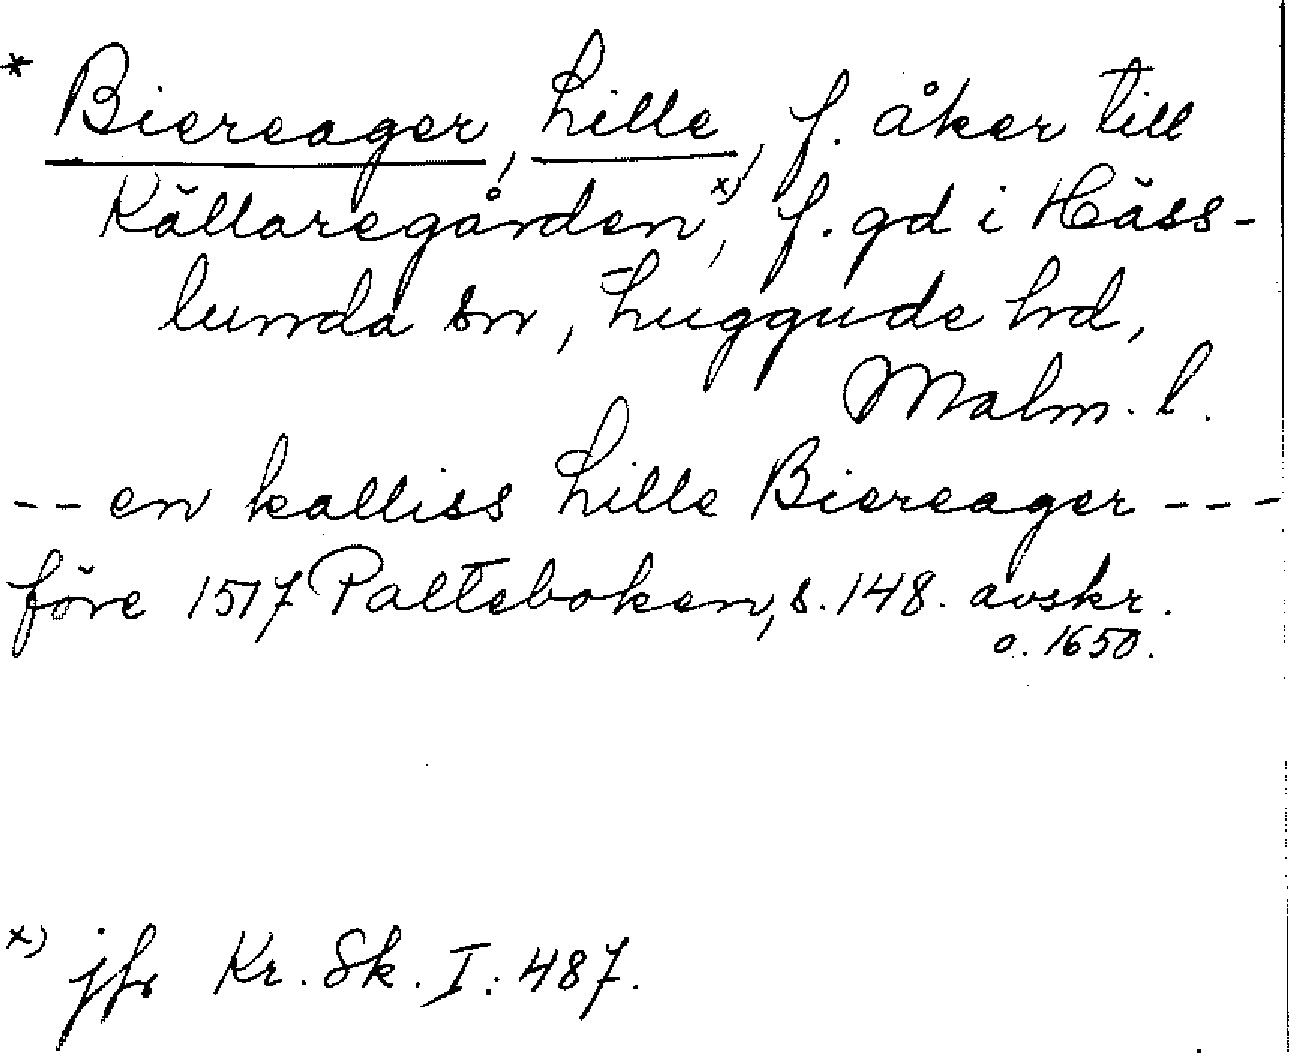 * Biereager, Lille, f. åker till
Källaregården x), f. gd i Häss-
lunda sn, Luggude hd,
Malm. l.
-- en kalliss Lille Biereager ---
före 1517 Palteboken, s. 148. avskr.
o. 1650.
x) jfr Kr. Sk. I: 487.